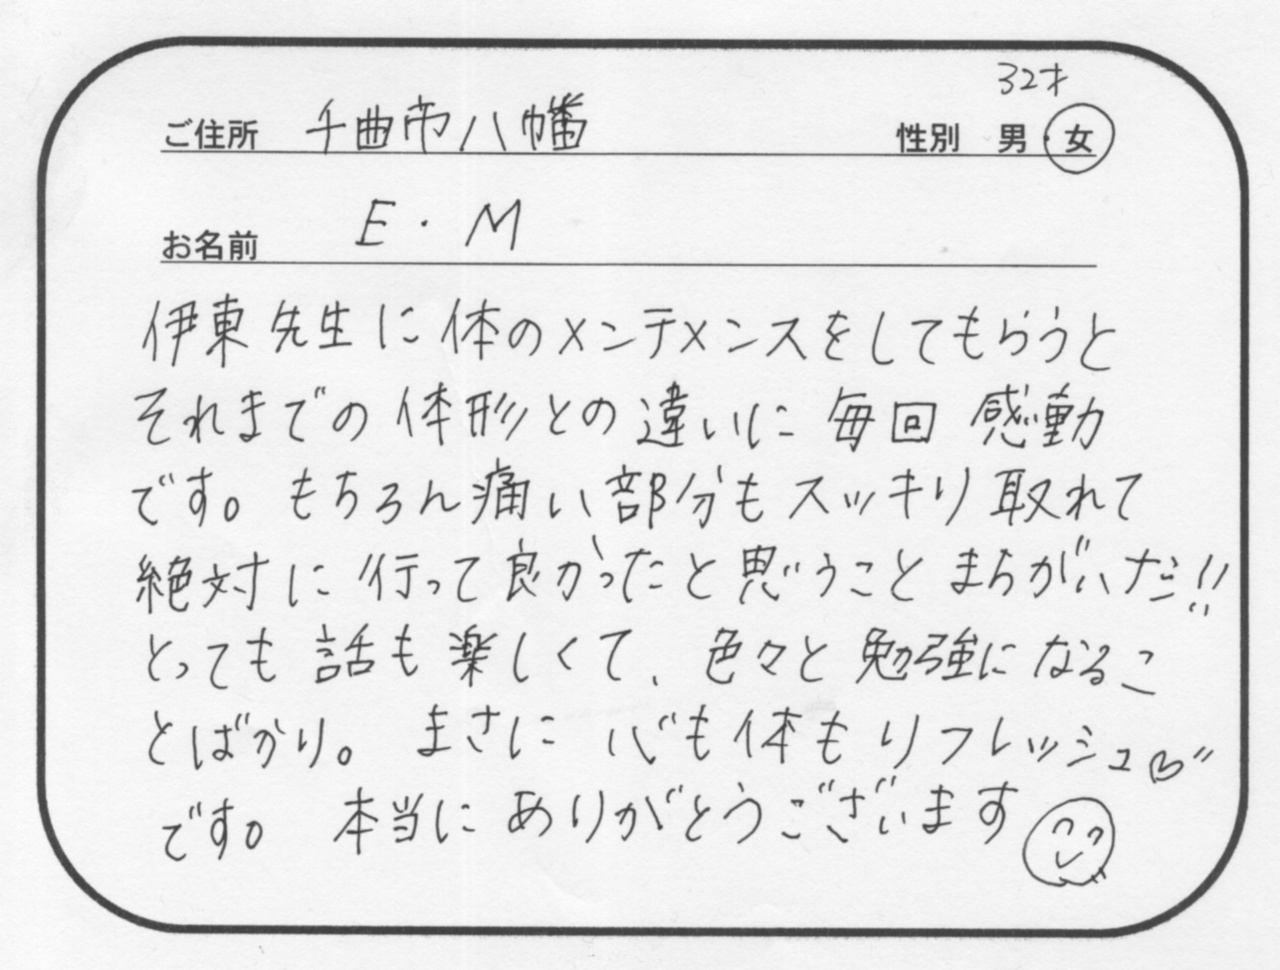 32才
ご住所 千曲市八幡 性別 男・女
お名前 E・M
伊東先生に体のメンテメンスをしてもらうと
それまでの体形との違いに毎回感動
です。もちろん痛い部分もスッキリ取れて
絶対に行って良かったと思うことまちがいナシ!!
とっても話も楽しくて、色々と勉強になるこ
とばかり。まさに心も体もリフレッシュ♡
です。本当にありがとうございます